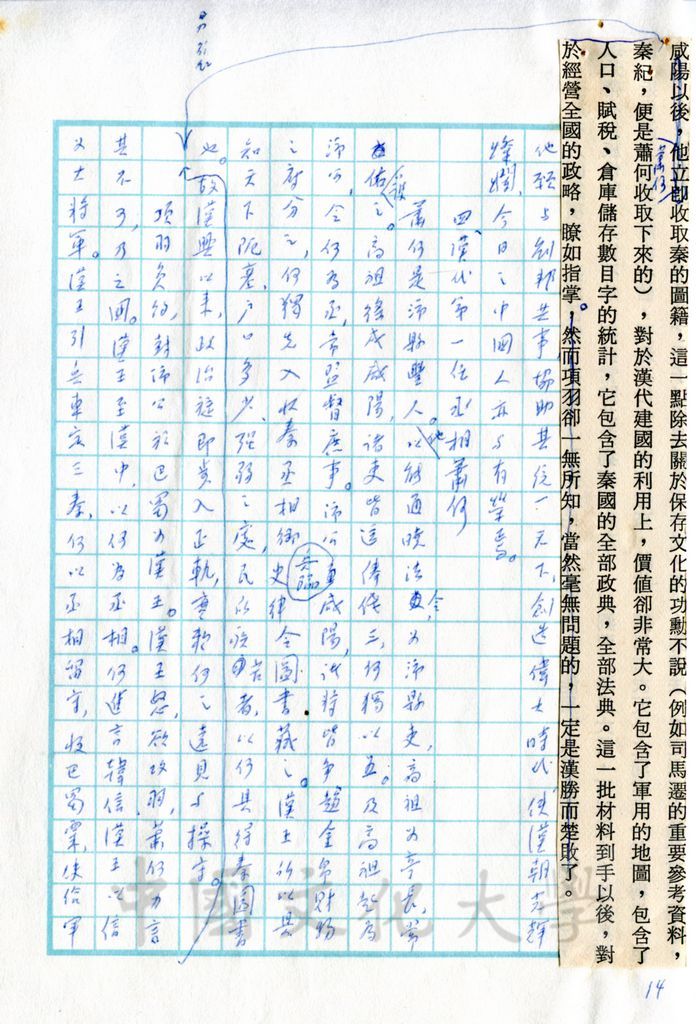 咸陽以後，他立卽收取秦的圖籍，這一點除去關於保存文化的功勳不說（例如司馬遷的重要參考資料，
秦紀，便是蕭何收取下來的），對於漢代建國的利用上，價値卻非常大。它包含了軍用的地圖，包含了
人口、賦稅、倉庫儲存數目字的統計，它包含了秦國的全部政典，全部法典。這一批材料到手以後，對
於經營全國的政略，瞭如指掌。然而項羽卻一無所知，當然毫無問題的，一定是漢勝而楚敗了。
蕭何
他輕與劉邦共事協助其統一天下，創造偉大時代，使漢朝光輝
燦爛，今日之中國人亦與有榮焉。
四、漢代第一任丞相蕭何
蕭何是沛縣豐人。他以能通曉法令，為沛縣吏，高祖為亭長，常
佑之。高祖後咸陽，諸吏皆送俸錢三，何獨以五。及高祖起為
沛公，令何為丞，常監督庶事。沛公至咸陽，諸將皆爭趨金帛財物
之府分之，何獨先入收秦丞相御史律令圖書藏之。漢王所以具
知天下阨塞，戶口多少，强弱之處，民所疾苦者，以何具得秦圖書
也。故漢興以來，政治旋即步入正軌，實歸何之遠見與操守。
項羽負約，封沛公於巴蜀為漢王。漢王怒，欲攻羽，蕭何力言
其不可，乃之國。漢王至漢中，以何為丞相。何進言韓信，漢王以信
為大將軍。漢王引兵東定三秦，何以丞相留守，收巴蜀粟，使給軍
中國文化大學
14